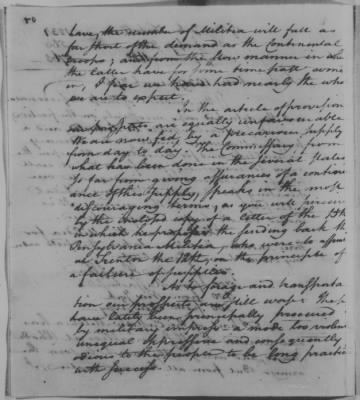 have, the number of Militia will fall as
far short of the demand as the Continental
Troops; and from the slow manner in which
the latter have for some time past come
in, I fear we have had nearly the whole
we are to expect.
In the article of provision
our prospects are equally unfavourable
We are now fed by a precarious supply
from day to day. The Commissary from
what has been done in the several States
so far from giving assurances of a continu
ance of this supply, speaks in the most
discouraging terms; as you will perceive
by the inclosed copy of a letter of the
in which he proposes the sending back the
Pensylvania Militia, who were to assemble
at Trenton the 12th, on the principle of
a failure of supplies.
As to forage and transporta
tion our prospects are still worse. These
have lately been principally procured
by military impress: a mode too violent
unequal oppressive and consequently
odious to the people to be long practiced
with success.